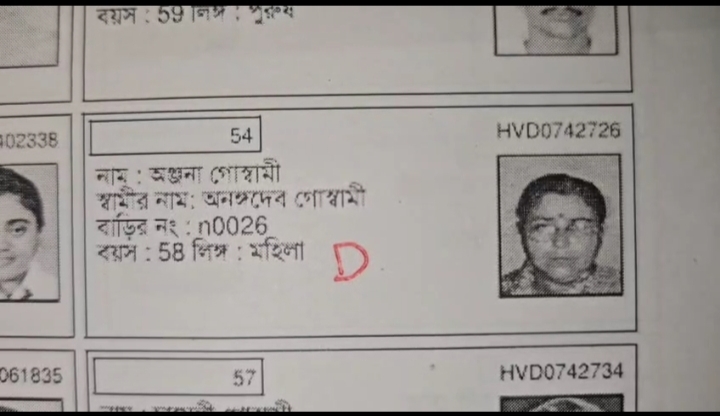 বয়স : 59 লিঙ্গ : পুরুষ
402338
54
HVD0742726
নাম : অঞ্জনা গোস্বামী
স্বামীর নাম: অনঙ্গদেব গোস্বামী
বাড়ির নং : n0026
বয়স : 58 লিঙ্গ : মহিলা
D
061835
57
HVD0742734